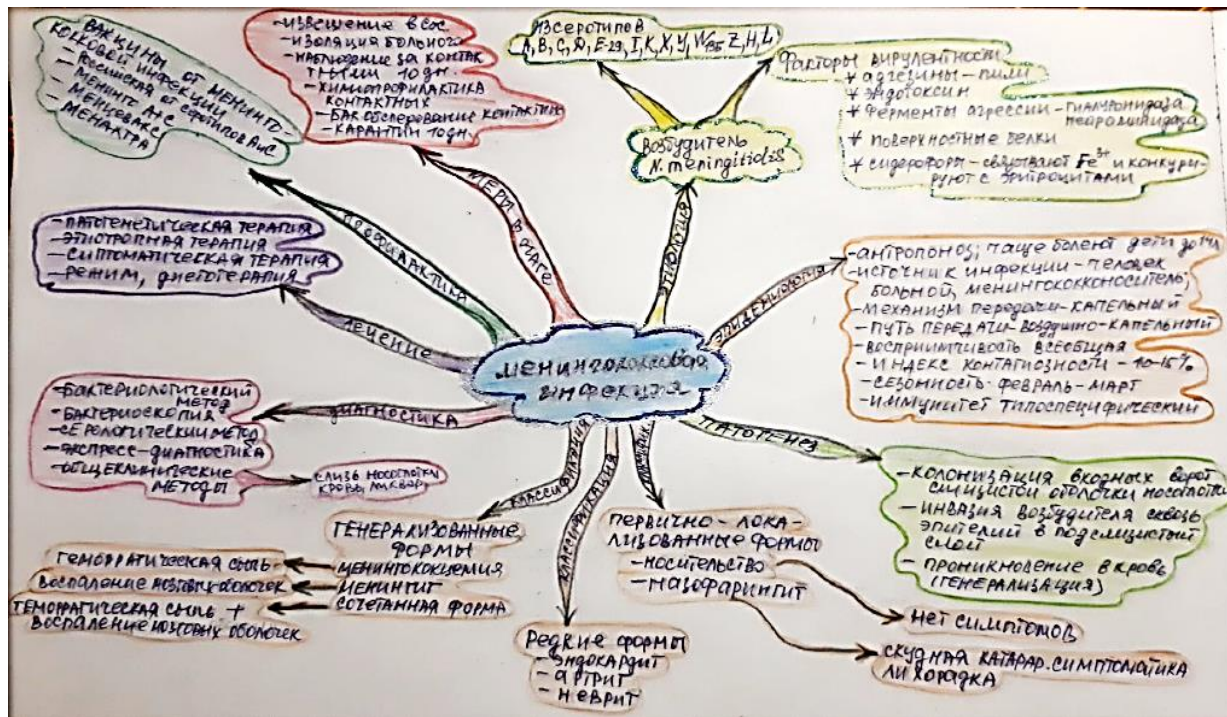 ВАКЦИНЫ ОТ МЕНИНГО-
КОККОВОЙ ИНФЕКЦИИ
- РОССИЙСКАЯ ОТ СЕРОТИПОВ А и С
- МЕНИНГО А+С
- МЕНЦЕВАКС
- МЕНАКТРА
- ИЗВЕЩЕНИЕ В СЭС
- ИЗОЛЯЦИЯ БОЛЬНОГО
- НАБЛЮДЕНИЕ ЗА КОНТАК
ТНЫМИ 10 ДН.
- ХИМИОПРОФИЛАКТИКА
КОНТАКТНЫХ
- БАК ОБСЛЕДОВАНИЕ КОНТАКТНЫХ
- КАРАНТИН 10 ДН.
СЕРОТИПОВ
A, B, C, D, E-29, I, K, X, Y, W135, Z, H, L
ФАКТОРЫ ВИРУЛЕНТНОСТИ
* АДГЕЗИНЫ - ПИЛИ
* ЭНДОТОКСИН
* ФЕРМЕНТЫ АГРЕССИИ - ГИАЛУРОНИДАЗА
НЕЙРАМИНИДАЗА
* ПОВЕРХНОСТНЫЕ БЕЛКИ
* СИДЕРОФОРЫ - СВЯЗЫВАЮТ Fe3+ И КОНКУРИ-
РУЮТ С ЭРИТРОЦИТАМИ
ВОЗБУДИТЕЛЬ
N. meningitidis
МЕРЫ В ОЧАГЕ
ПРОФИЛАКТИКА
ЭТИОЛОГИЯ
- ПАТОГЕНЕТИЧЕСКАЯ ТЕРАПИЯ
- ЭТИОТРОПНАЯ ТЕРАПИЯ
- СИПТОМАТИЧЕСКАЯ ТЕРАПИЯ
- РЕЖИМ, ДИЕТОТЕРАПИЯ
ЛЕЧЕНИЕ
ЭПИДЕМИОЛОГИЯ
- АНТРОПОНОЗ; ЧАЩЕ БОЛЕЮТ ДЕТИ ДО
- ИСТОЧНИК ИНФЕКЦИИ - ЧЕЛОВЕК
БОЛЬНОЙ, МЕНИНГОКОККОНОСИТЕЛЬ;
- МЕХАНИЗМ ПЕРЕДАЧИ - КАПЕЛЬНЫЙ
- ПУТЬ ПЕРЕДАЧИ - ВОЗДУШНО-КАПЕЛЬНЫЙ
- ВОСПРИИМЧИВОСТЬ ВСЕОБЩАЯ
- ИНДЕКС КОНТАГИОЗНОСТИ - 10-15%
- СЕЗОННОСТЬ - ФЕВРАЛЬ-МАРТ
- ИММУНИТЕТ ТИПОСПЕЦИФИЧЕСКИЙ
МЕНИНГОКОККОВАЯ
ИНФЕКЦИЯ
- БАКТЕРИОЛОГИЧЕСКИЙ
МЕТОД
- БАКТЕРИОСКОПИЯ
- СЕРОЛОГИЧЕСКИЙ МЕТОД
- ЭКСПРЕСС-ДИАГНОСТИКА
- ОБЩЕКЛИНИЧЕСКИЕ
МЕТОДЫ
ДИАГНОСТИКА
СЛИЗЬ НОСОГЛОТКИ
КРОВЬ ЛИКВОР
ПАТОГЕНЕЗ
- КОЛОНИЗАЦИЯ ВХОДНЫХ ВОРОТ
СЛИЗИСТОЙ ОБОЛОЧКИ НОСОГЛОТКИ
- ИНВАЗИЯ ВОЗБУДИТЕЛЯ СКВОЗЬ
ЭПИТЕЛИЙ В ПОДСЛИЗИСТЫЙ
СЛОЙ
- ПРОНИКНОВЕНИЕ В КРОВЬ
(ГЕНЕРАЛИЗАЦИЯ)
КЛАССИФИКАЦИЯ
КЛАССИФИКАЦИЯ
ГЕНЕРАЛИЗОВАННЫЕ
ФОРМЫ
МЕНИНГОКОКЦЕМИЯ
МЕНИНГИТ
СОЧЕТАННАЯ ФОРМА
ГЕМОРРАГИЧЕСКАЯ СЫПЬ
ВОСПАЛЕНИЕ МОЗГОВЫХ ОБОЛОЧЕК
ГЕМОРРАГИЧЕСКАЯ СЫПЬ +
ВОСПАЛЕНИЕ МОЗГОВЫХ ОБОЛОЧЕК
ПЕРВИЧНО - ЛОКА-
ЛИЗОВАННЫЕ ФОРМЫ
- НОСИТЕЛЬСТВО
- НАЗОФАРИНГИТ
РЕДКИЕ ФОРМЫ
- ЭНДОКАРДИТ
- АРТРИТ
- НЕВРИТ
НЕТ СИМПТОМОВ
СКУДНАЯ КАТАРАР. СИМПТОМАТИКА
ЛИХОРАДКА